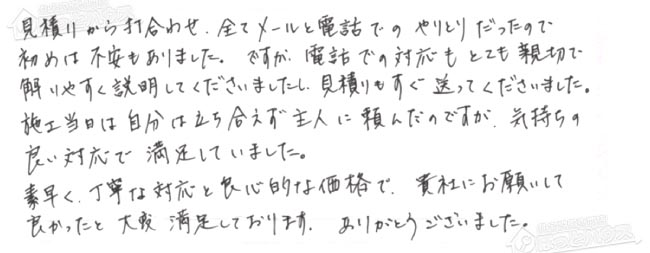 見積りから打合わせ、全てメールと電話でのやりとりだったので
初めは不安もありました。ですが、電話での対応もとても親切で
解りやすく説明してくださいましたし、見積りもすぐ送ってくださいました。
施工当日は自分は立ち合えず主人に頼んだのですが、気持ちの
良い対応で満足していました。
素早く、丁寧な対応と良心的な価格で、貴社にお願いして
良かったと大変満足しております。ありがとうございました。